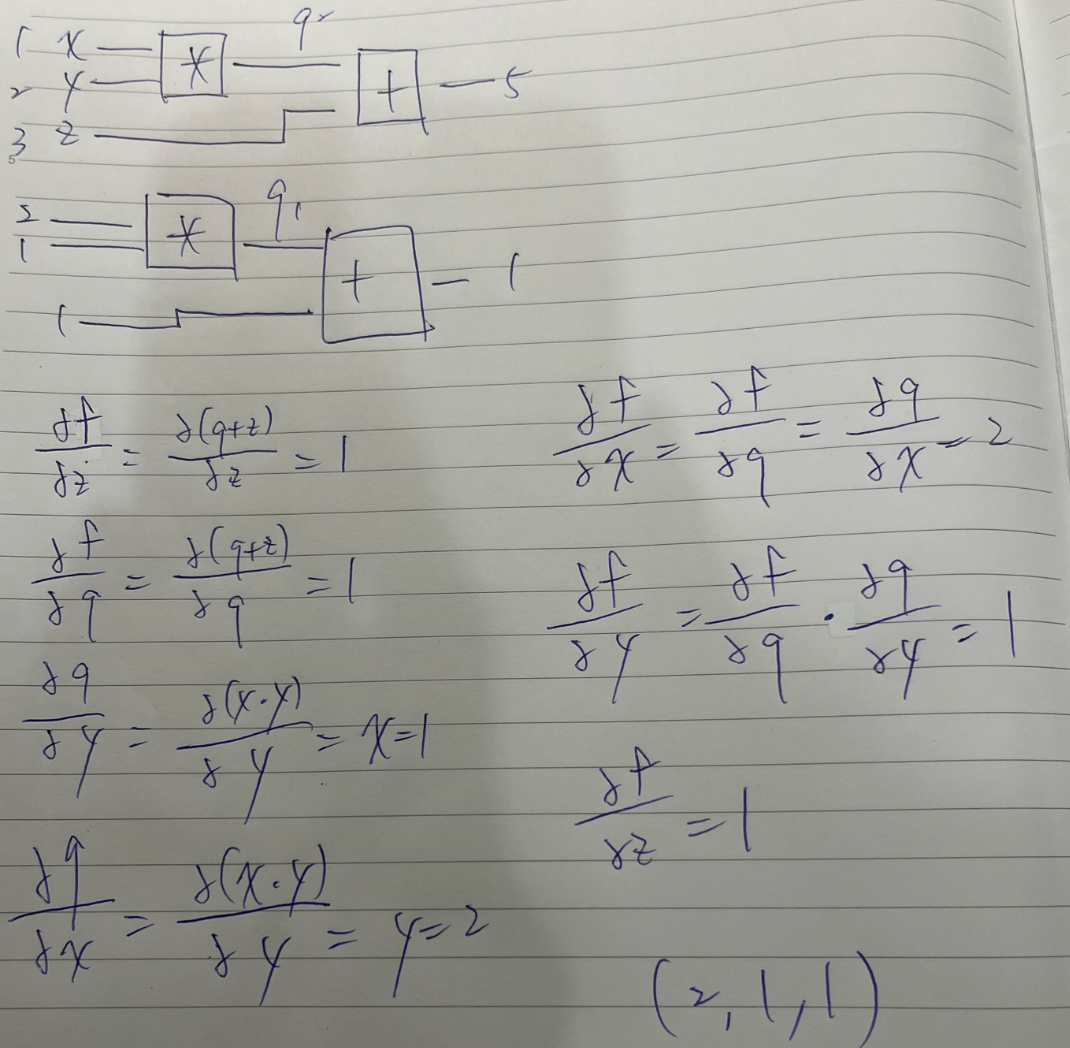 q 2
1 x * + 5
2 y
3 z
2 * q 1
1 + 1
1
∂f/∂z = ∂(q+z)/∂z = 1
∂f/∂q = ∂(q+z)/∂q = 1
∂q/∂y = ∂(x·y)/∂y = x=1
∂q/∂x = ∂(x·y)/∂y = y=2
∂f/∂x = ∂f/∂q = ∂q/∂x = 2
∂f/∂y = ∂f/∂q · ∂q/∂y = 1
∂f/∂z = 1
(2,1,1)